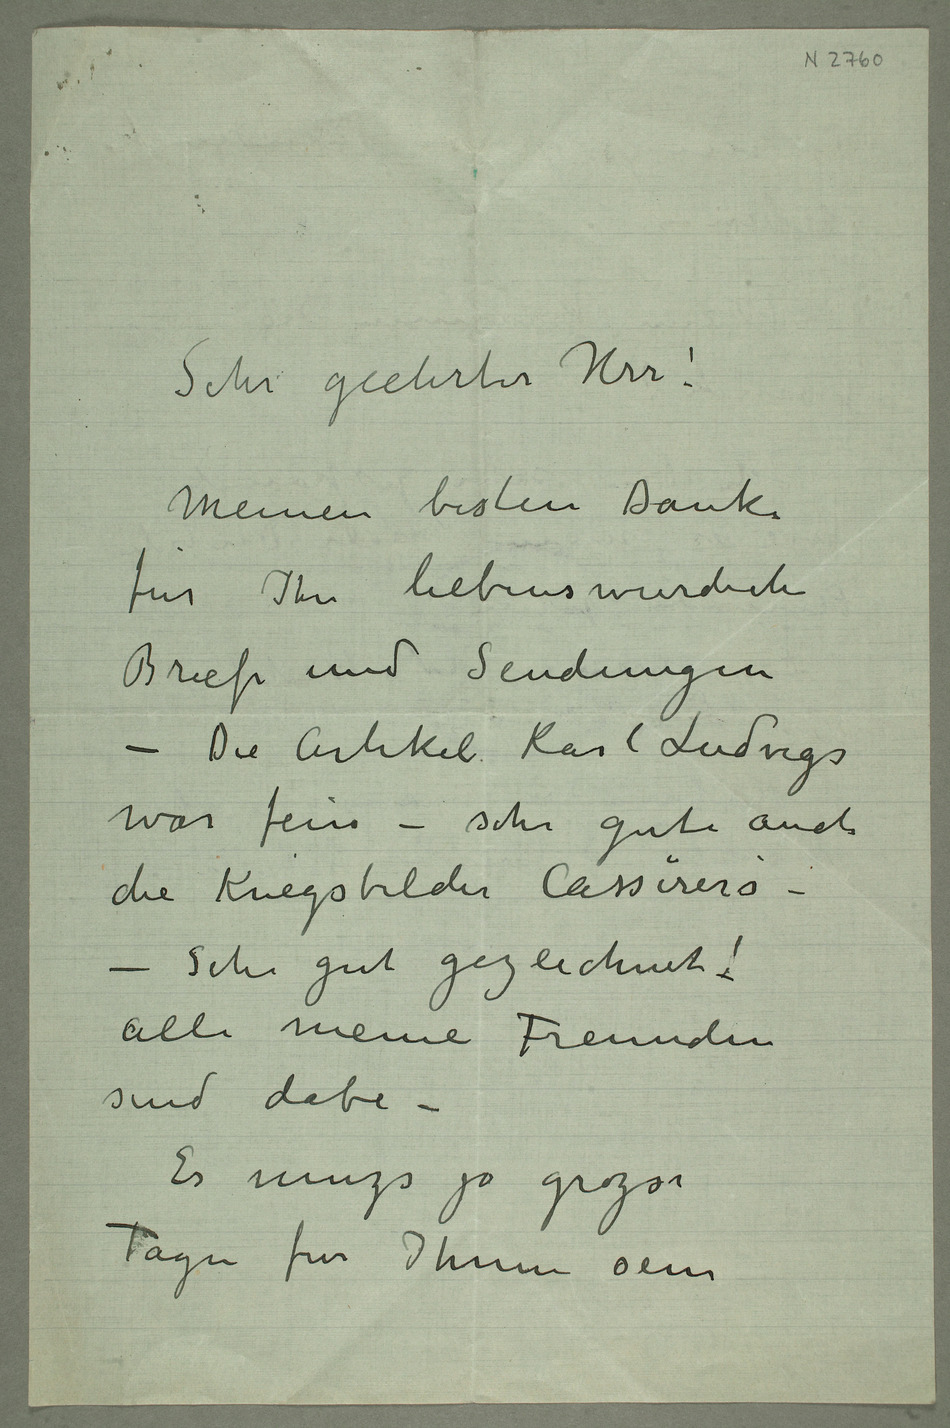 N 2760
Sehr geehrter Herr!
Meinen besten Dank
für Ihre liebenswurdiche
Briefe und Sendungen
– Die Artikel Karl Ludvigs
war fein – sehr gute auch
die Kriegsbilder Cassirers –
– Sehr gut gezeichnet!
alle meine Freunden
sind dabe –
Es muszs ja groszse
Tagen fur Ihnen sein